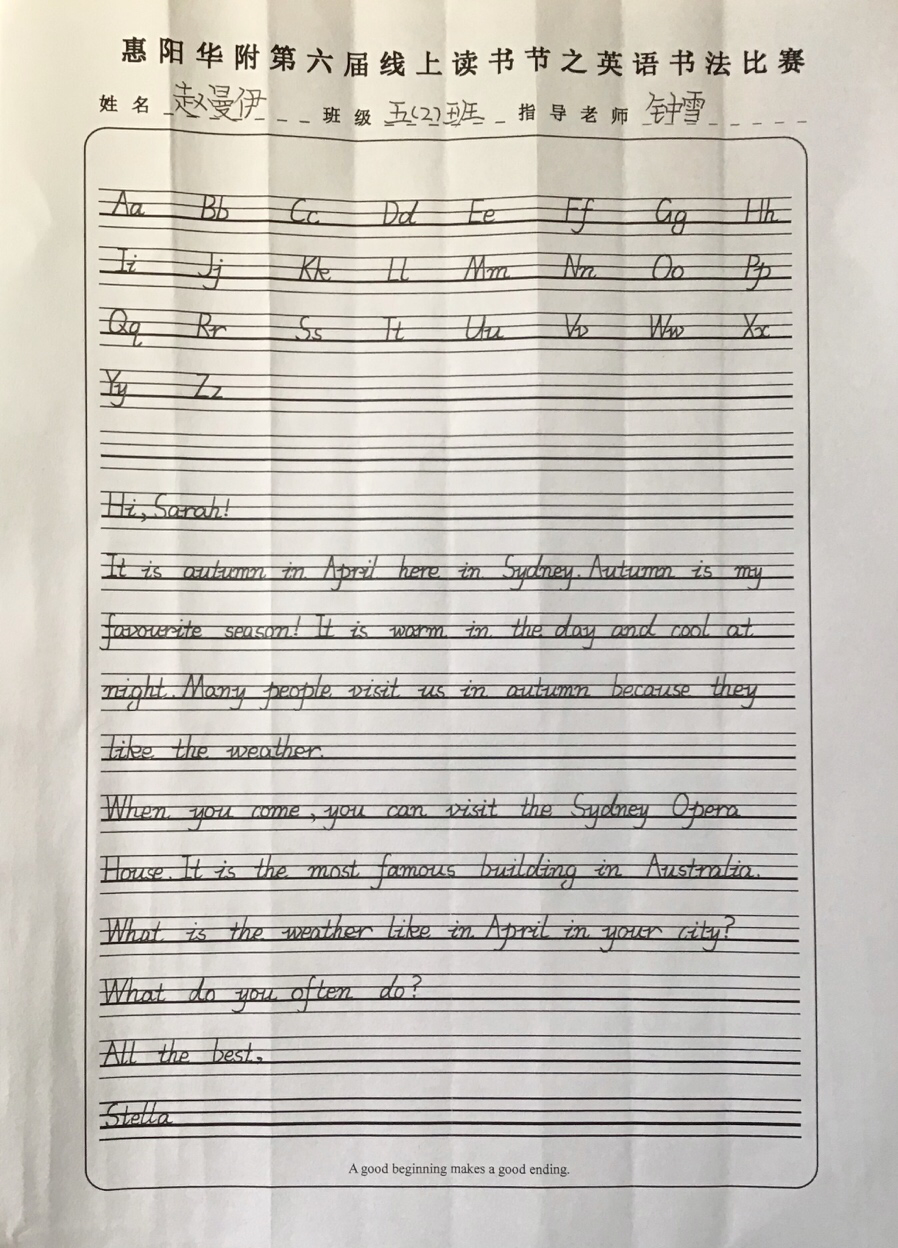 惠阳华附第六届线上读书节之英语书法比赛
姓名 赵曼伊 班级 五(2)班 指导老师 钟雪
Aa Bb Cc Dd Ee Ff Gg Hh
Ii Jj Kk Ll Mm Nn Oo Pp
Qq Rr Ss Tt Uu Vv Ww Xx
Yy Zz
Hi, Sarah!
It is autumn in April here in Sydney. Autumn is my
favourite season! It is warm in the day and cool at
night. Many people visit us in autumn because they
like the weather.
When you come, you can visit the Sydney Opera
House. It is the most famous building in Australia.
What is the weather like in April in your city?
What do you often do?
All the best,
Stella
A good beginning makes a good ending.